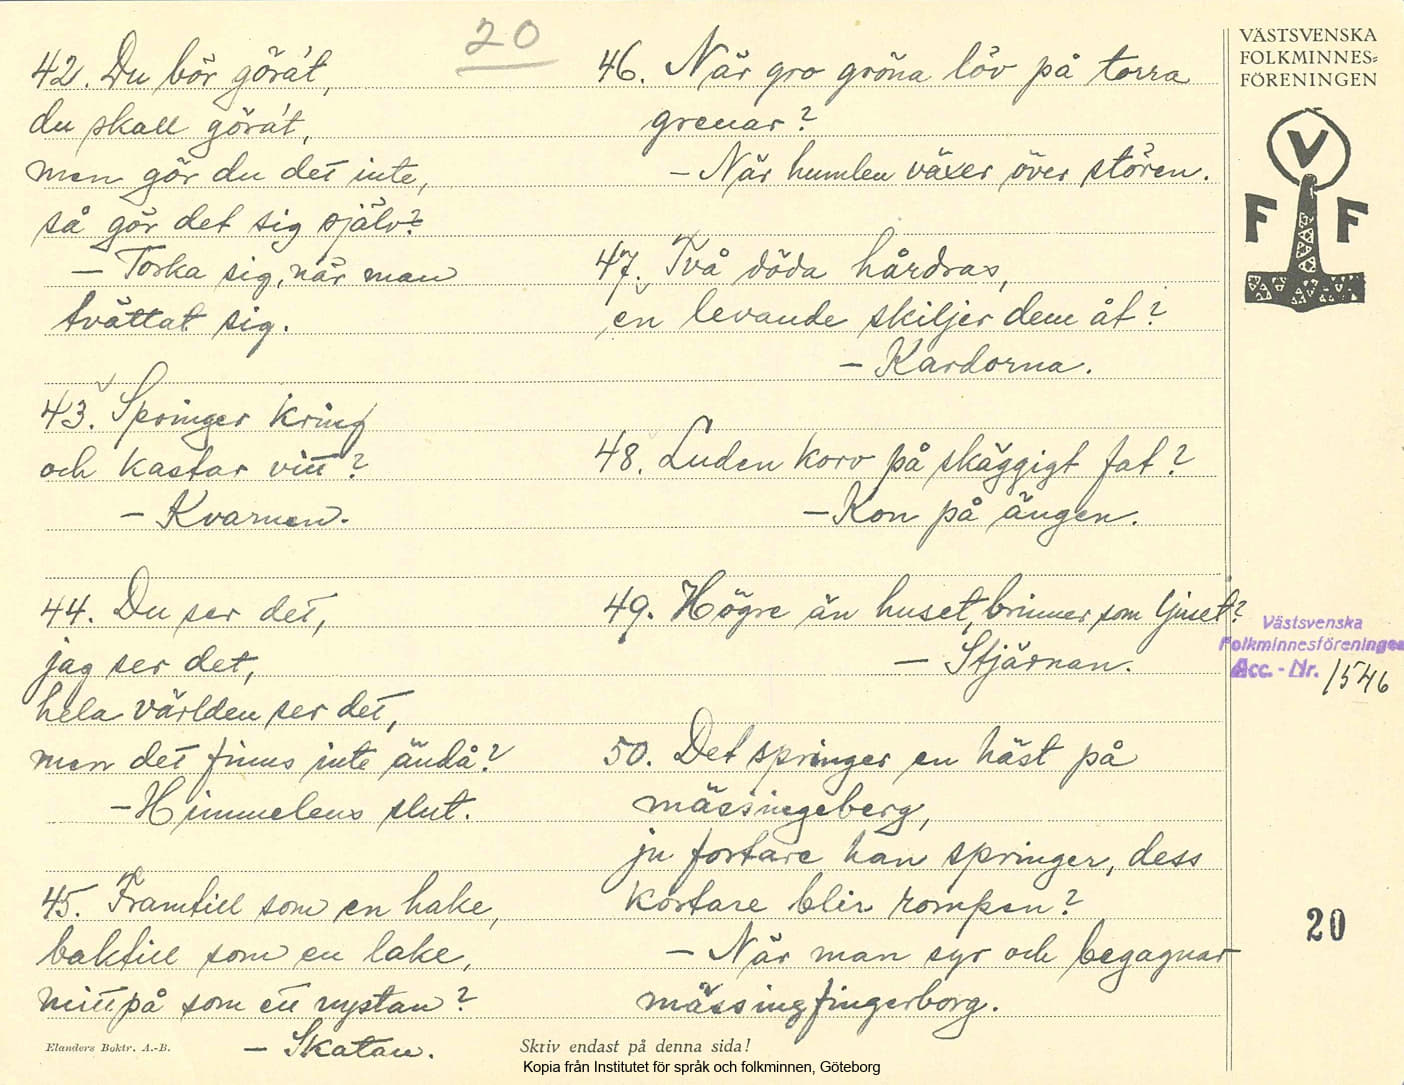 20
42. Du bör göra't,
du skall göra't,
men gör du det inte,
så gör det sig själv?
– Torka sig, när man
tvättat sig.
43. Springer kring
och kastar vitt?
– Kvarnen.
44. Du ser det,
jag ser det,
hela världen ser det,
men det finns inte ändå?
– Himmelens slut.
45. Framtill som en hake,
baktill som en lake,
mittpå som ett nystan?
– Skatan.
46. När gro gröna löv på torra
grenar?
– När humlen växer över stören.
47. Två döda hårdras,
en levande skiljer dem åt?
– Kardorna.
48. Luden korv på skäggigt fat?
– Kon på ängen.
49. Högre än huset, brinner som ljuset?
– Stjärnan.
50. Det springer en häst på
mässingeberg,
ju fortare han springer, dess
kortare blir rompen?
– När man syr och begagnar
mässingfingerborg.
VÄSTSVENSKA
FOLKMINNES=
FÖRENINGEN
V
F F
Västsvenska
Folkminnesföreningen
Acc.-Nr. 1546
20
Elanders Boktr. A.-B.
Skriv endast på denna sida!
Kopia från Institutet för språk och folkminnen, Göteborg